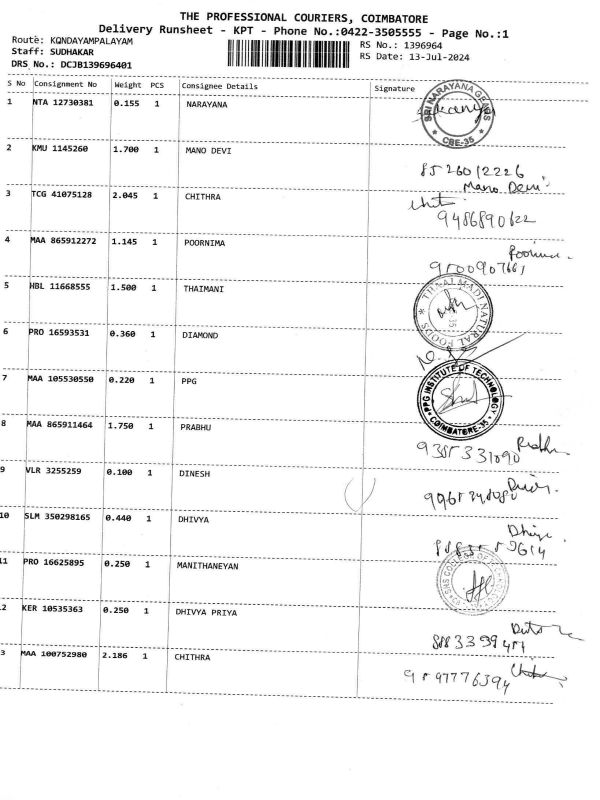 THE PROFESSIONAL COURIERS, COIMBATORE
Delivery Runsheet - KPT - Phone No.:0422-3505555 - Page No.:1
Route: KONDAYAMPALAYAM
Staff: SUDHAKAR
DRS No.: DCJB139696401
RS No.: 1396964
RS Date: 13-Jul-2024
S No Consignment No Weight PCS Consignee Details Signature
1 NTA 12730381 0.155 1 NARAYANA
SRI NARAYANA CBE-35
2 KMU 1145260 1.700 1 MANO DEVI
8526012226
Mano Devi
3 TCG 41075128 2.045 1 CHITHRA
9486890622
4 MAA 865912272 1.145 1 POORNIMA
Poornima
9500907661
5 HBL 11668555 1.500 1 THAIMANI
NATURAL FOODS
6 PRO 16593531 0.360 1 DIAMOND
7 MAA 105530550 0.220 1 PPG
PPG INSTITUTE OF TECHNOLOGY COIMBATORE-35
8 MAA 865911464 1.750 1 PRABHU
9385331090
9 VLR 3255259 0.100 1 DINESH
10 SLM 350298165 0.440 1 DHIVYA
11 PRO 16625895 0.250 1 MANITHANEYAN
2 KER 10535363 0.250 1 DHIVYA PRIYA
3 MAA 100752980 2.186 1 CHITHRA
9597776394